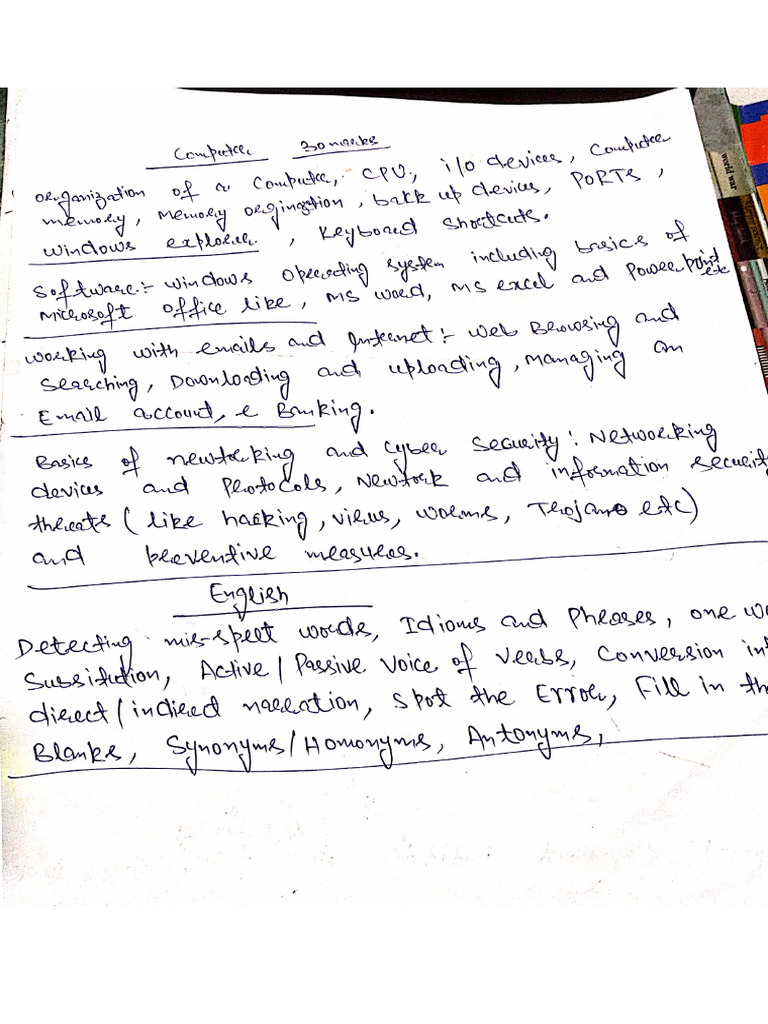 Computer 30 marks
organization of a Computer, CPU, i/o devices, Computer
memory, memory orginization, back up devices, PORTS,
windows explorer, Keyboard Shortcuts.
Software:- windows Operating system including basics of
microsoft office like, MS word, MS excel and Power point
etc
working with emails and Internet:- Web Browsing and
Searching, Downloading and uploading, Managing an
Email account, e Banking.
Basics of newtorking and cyber security: Networking
devices and Protocols, Newtork and information security
threats (like hacking, virus, worms, Trojans etc)
and preventive measures.
English
Detecting mis-spelt words, Idioms and Phrases, one wo
Subsitution, Active/Passive Voice of Verbs, Conversion int
direct/indirect narration, spot the Error, Fill in th
Blanks, Synonyms/Homonyms, Antonyms,
world war